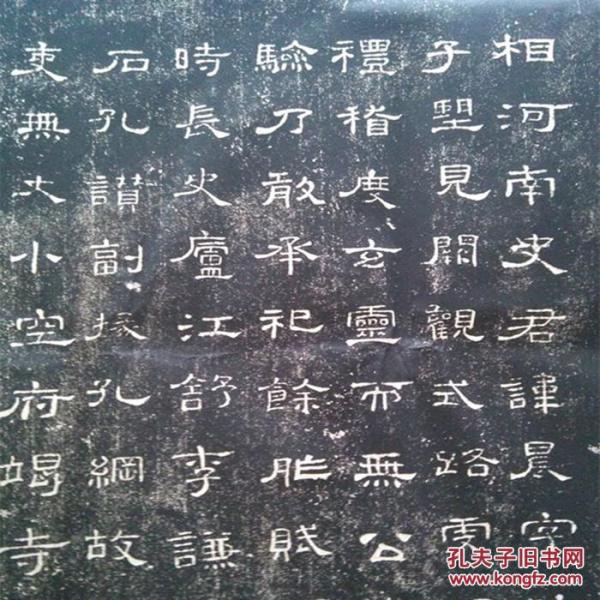 相河南史君諱晨字
子朢見闕觀式路虔
禮稽度玄靈而無公
驗乃敢承祀餘胙賦
時長史廬江舒李謙
石孔讃副掾孔綱故
吏無大小空府竭寺
孔夫子旧书网
www.kongfz.com